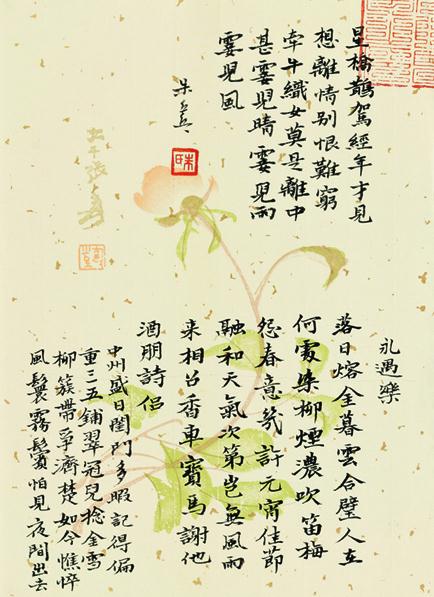 星橋鵲駕經年才見
想離情别恨難窮
牽牛織女莫是離中
甚霎兒晴霎兒雨
霎兒風
朱
永遇樂
落日熔金暮雲合璧人在
何處染柳煙濃吹笛梅
怨春意幾許元宵佳節
融和天氣次第豈無風雨
来相召香車寶馬謝他
酒朋詩侣
中州盛日閨門多暇記得偏
重三五鋪翠冠兒捻金雪
柳簇帶争濟楚如今憔悴
風鬟霧鬢怕見夜間出去